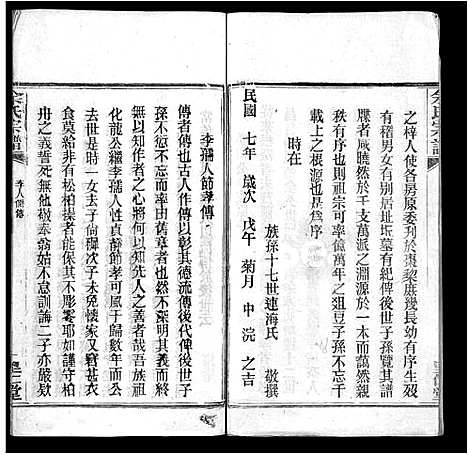 余氏宗譜
之梓人使各房原委刋於棗黎庶幾長幼有序生殁
有稽男女有别居址坵墳有紀俾後世子孫覧其譜
牒者咸曉然於千支萬派之淵源於一本而藹然親
秩有序則祖宗可率億萬年之俎豆子孫不忘千
載上之根源也是爲序
時在
民國七年歲次戊午菊月中浣之吉
族孫十七世連海氏敬撰
李孺人節孝傳
傳者傳也古人作傳以彰其德流傳後代俾後世子
孫不愆不忘而率由舊章者也然不發明其義而修
無以知作者之心將何以知先人之義者哉吾族祖
化龍公繼李孺人性貞靜節孝可風于歸數年而公
已終時一女去子尙穉次子未免懐家又窘甚衣
食莫給非有松柏操者其不彫零耶如謹守柏
舟之義誓死無他敬奉無怠訓誨二子亦嚴歟
余氏宗譜
李人節傳